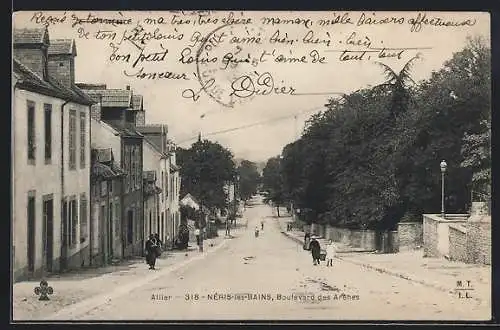 Reçois ma très chère maman, mille baisers affectueux
de ton petit Louis qui t'aime bien, bien, bien,
ton petit Louis qui t'aime de tout, tout
son cœur
Didier
Allier - 318 - NÉRIS-les-BAINS, Boulevard des Arènes
M. T.
I. L.